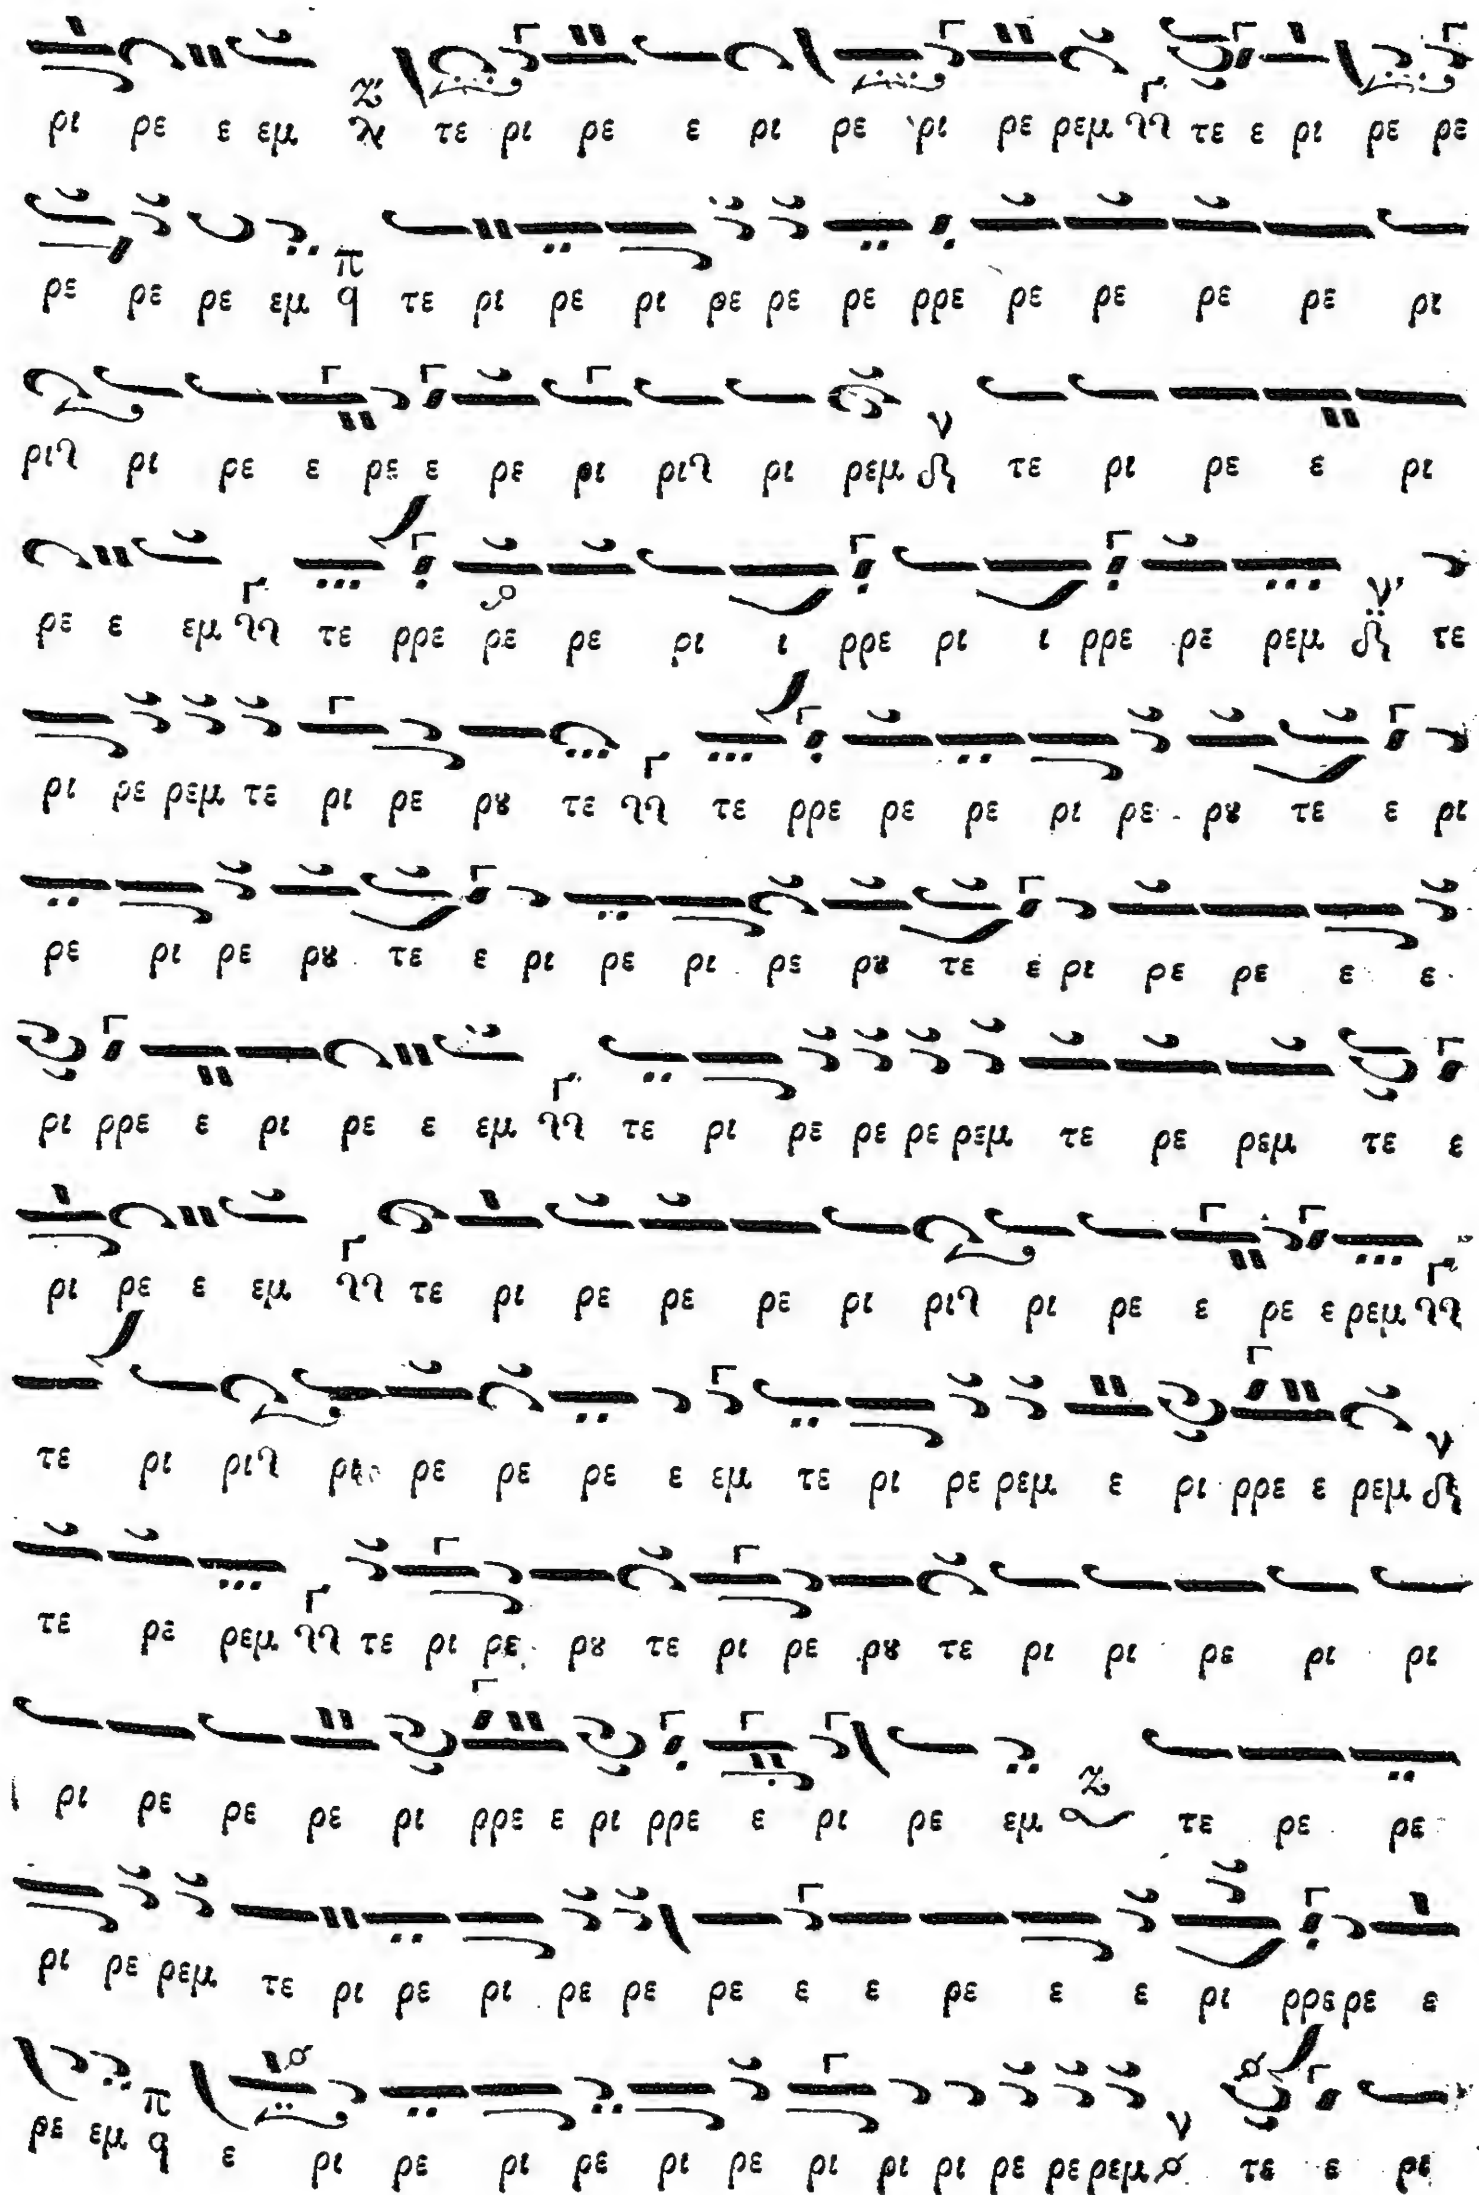 ρι ρε ε εμ τε ρι ρε ε ρι ρε ρι ρε ρεμ τε ε ρι ρε ρε
ρε ρε ρε εμ τε ρι ρε ρι ρε ρε ρε ρρε ρε ρε ρε ρε ρι
ρι ρι ρε ε ρε ε ρε ρι ρι ρι ρεμ τε ρι ρε ε ρι
ρε ε εμ τε ρρε ρε ρε ρι ι ρρε ρι ι ρρε ρε ρεμ τε
ρι ρε ρεμ τε ρι ρε ρȣ τε τε ρρε ρε ρε ρι ρε ρȣ τε ε ρι
ρε ρι ρε ρȣ τε ε ρι ρε ρι ρε ρȣ τε ε ρι ρε ρε ε ε
ρι ρρε ε ρι ρε ε εμ τε ρι ρε ρε ρε ρεμ τε ρε ρεμ τε ε
ρι ρε ε εμ τε ρι ρε ρε ρε ρι ρι ρι ρε ε ρε ε ρεμ
τε ρι ρι ρε ρε ρε ε εμ τε ρι ρε ρεμ ε ρι ρρε ε ρεμ
τε ρε ρεμ τε ρι ρε ρȣ τε ρι ρε ρȣ τε ρι ρι ρε ρι ρι
ρι ρε ρε ρε ρι ρρε ε ρι ρρε ε ρι ρε εμ τε ρε ρε
ρι ρε ρεμ τε ρι ρε ρι ρε ρε ρε ε ε ρε ε ε ρι ρρε ρε ε
ρε εμ ε ρι ρε ρι ρε ρι ρε ρι ρι ρι ρε ρε ρεμ τε ε ρε